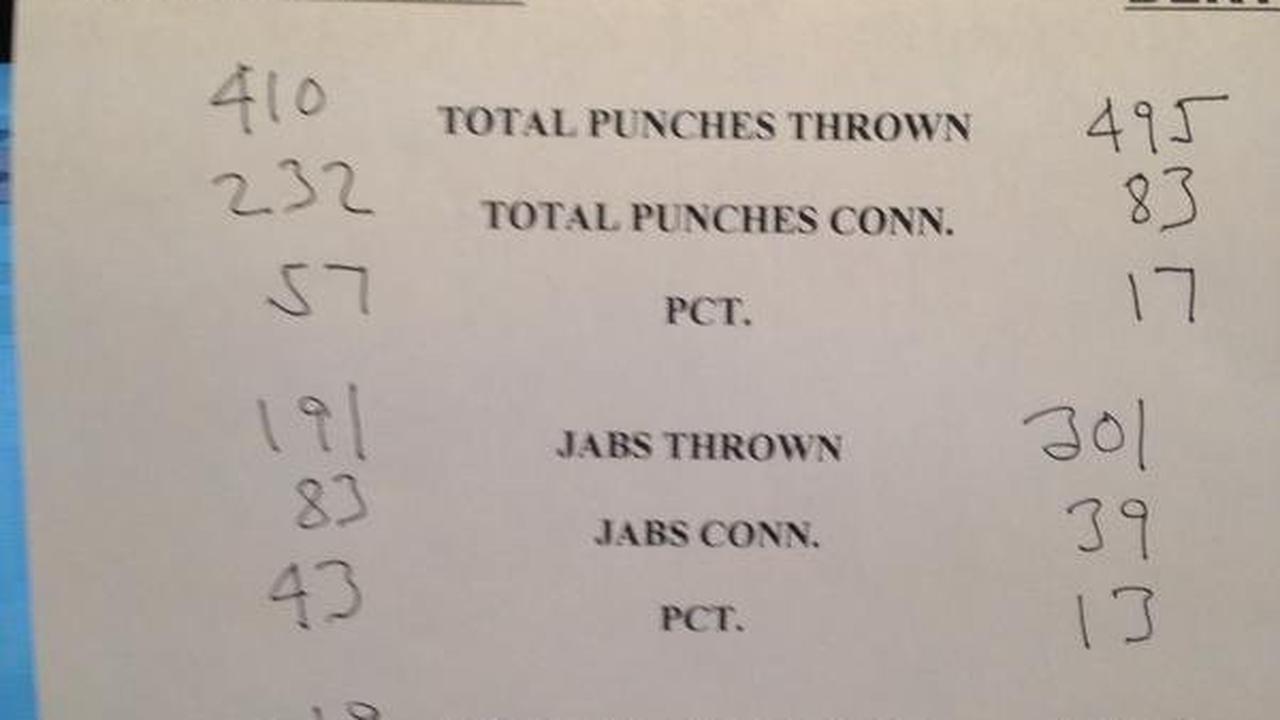 410 TOTAL PUNCHES THROWN 495
232 TOTAL PUNCHES CONN. 83
57 PCT. 17
191 JABS THROWN 301
83 JABS CONN. 39
43 PCT. 13